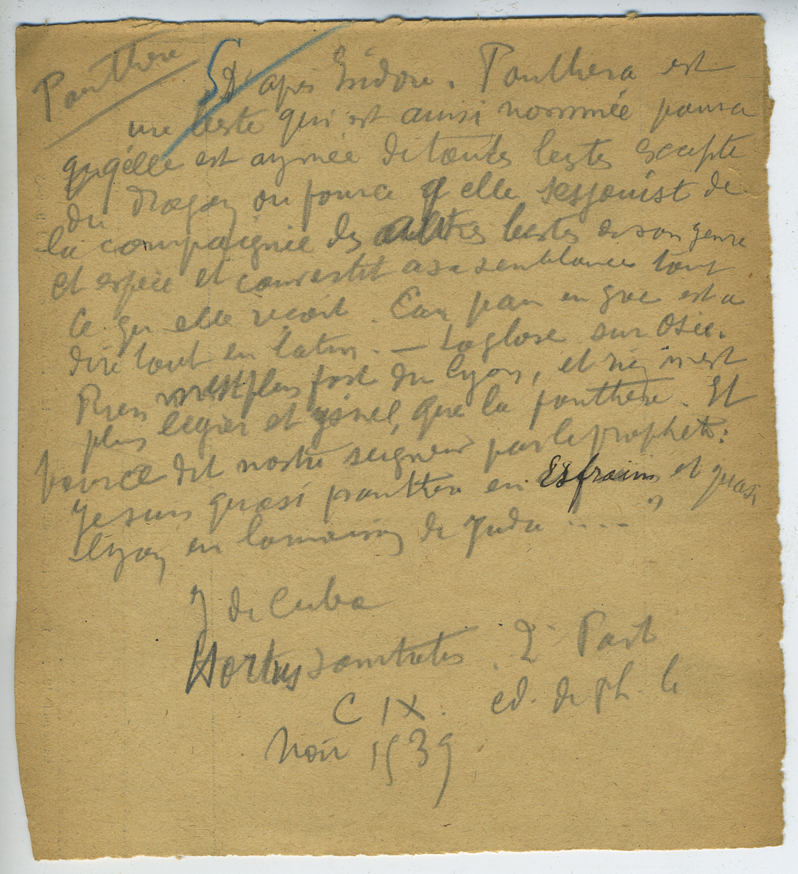 Panthère
D'apès Isidore. Panthera est
une beste qui est ainsi nommée pource
qu'elle est aymée de toutes bestes excepte
du dragon ou pource q elle sesjouist de
la compaignie des aultres bestes de son genre
et espèce et convertit a sa semblance tout
ce qu elle reçoit. Car pan en grec est a
dire tout en latin. — La glose sur Osée.
Rien n'est plus fort du lyon, et rien n'est
plus legier et ysnel, que la panthère. Et
pource dit nostre seigneur par le prophete:
Je suis quasi panthera en Esfraim et quasi
lyon en la maison de Juda ..... "
J de Cuba
Hortus sanitatis. 2e Part
C IX. ed. de Ph. le
Noir 1539.